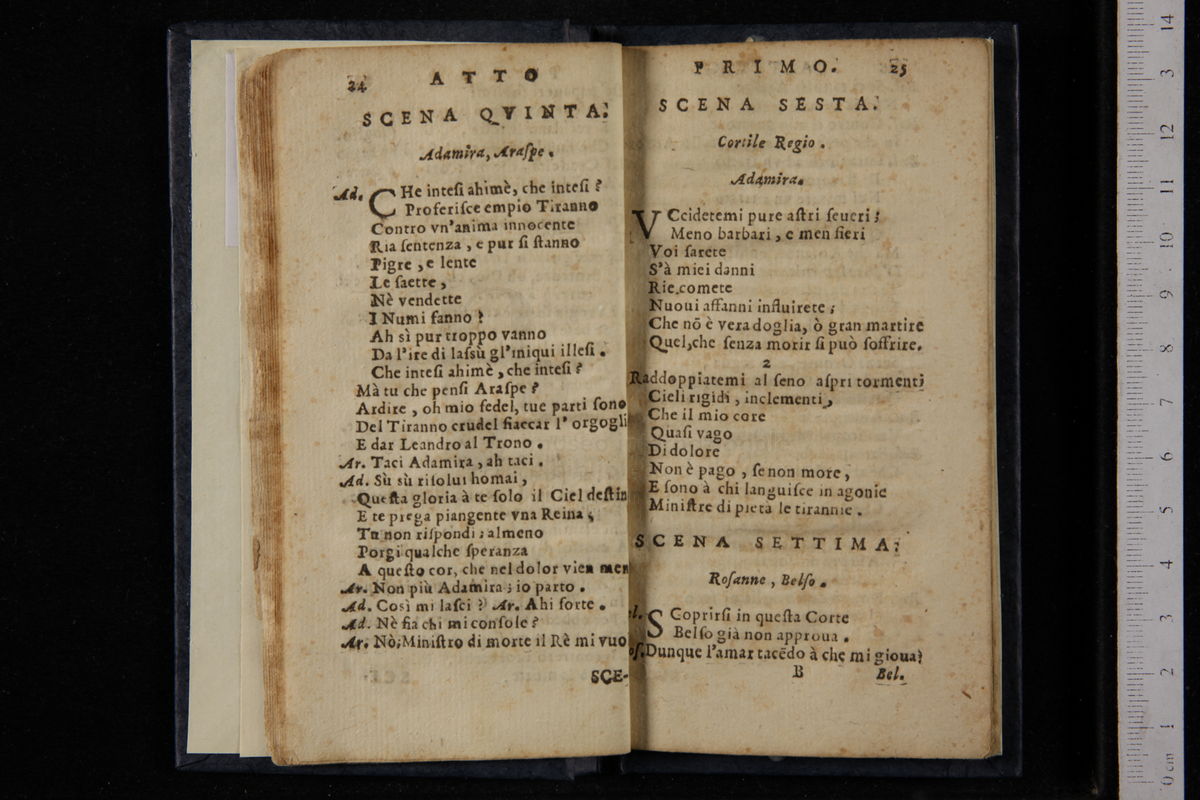 24 ATTO
SCENA QVINTA.
Adamira, Araſpe.
Ad. CHe inteſi ahimè, che inteſi?
Proferiſce empio Tiranno
Contro vn'anima innocente
Ria ſentenza, e pur ſi ſtanno
Pigre, e lente
Le ſaette,
Nè vendette
I Numi fanno?
Ah sì pur troppo vanno
Da l'ire di laſsù gl'iniqui illeſi.
Che inteſi ahimè, che inteſi?
Mà tu che penſi Araſpe?
Ardire, oh mio fedel, tue parti ſono
Del Tiranno crudel fiaccar l'orgogli
E dar Leandro al Trono.
Ar. Taci Adamira, ah taci.
Ad. Sù sù riſolui homai,
Queſta gloria à te ſolo il Ciel deſtin
E te prega piangente vna Reina;
Tu non riſpondi; almeno
Porgi qualche ſperanza
A queſto cor, che nel dolor vien men
Ar. Non più Adamira; io parto.
Ad. Così mi laſci? Ar. Ahi ſorte.
Ad. Nè fia chi mi conſole?
Ar. Nò; Miniſtro di morte il Rè mi vuo
SCE-
PRIMO. 25
SCENA SESTA.
Cortile Regio.
Adamira.
VCcidetemi pure aſtri ſeueri;
Meno barbari, e men fieri
Voi ſarete
S'à miei danni
Rie comete
Nuoui affanni influirete;
Che nō è vera doglia, ò gran martire
Quel, che ſenza morir ſi può ſoffrire.
2
Raddoppiatemi al ſeno aſpri tormenti
Cieli rigidi, inclementi,
Che il mio core
Quaſi vago
Di dolore
Non è pago, ſe non more,
E ſono à chi languiſce in agonie
Miniſtre di pietà le tirannie.
SCENA SETTIMA.
Roſanne, Belſo.
el. SCoprirſi in queſta Corte
Belſo già non approua.
oſ. Dunque l'amar tacēdo à che mi gioua?
B Bel.